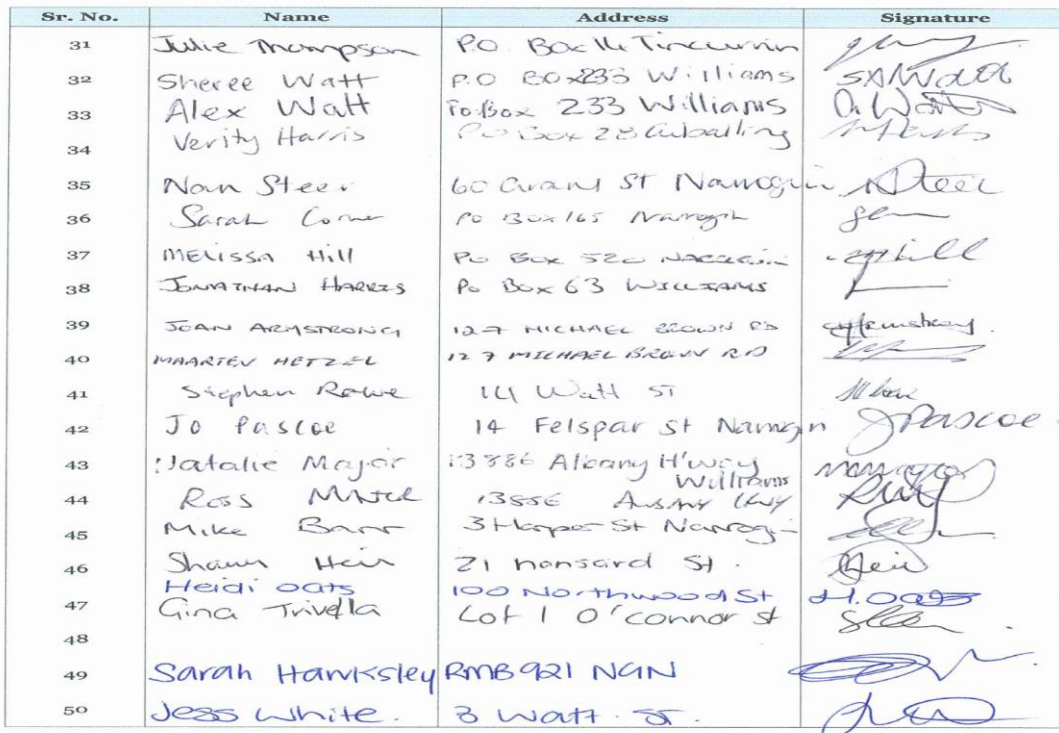 Sr. No. Name Address Signature
31 Julie Thompson P.O. Box 14 Tincurrin
32 Sheree Watt P.O BOx233 Williams SANWatt
33 Alex Watt Po Box 233 Williams A. Watt
34 Verity Harris Po Box 28 Cuballing
35 Nan Steer 60 Grant St Narrogin NSteer
36 Sarah Corner Po Box 165 Narrogin
37 MELISSA Hill Po Box 520 NARROGIN
38 JONATHAN HARRIS Po Box 63 WILLIAMS
39 JOAN ARMSTRONG 127 MICHAEL BROWN RD
40 MAARTEN HETZEL 127 MICHAEL BROWN RD
41 Stephen Rowe Watt ST
42 Jo Pascoe 14 Felspar St Narrogin JPascoe
43 Natalie Major 13886 Albany H'way
Williams
44 Ross Albany
45 Mike Barr 3 Harper St Narrogin
46 Shaun 21 hansard St.
Heidi Oats 100 Northwood St H.Oats
47 Gina Trivella Lot 1 O'connor st
48
49 Sarah Hawksley RMB 921 NGN
50 Jess White. 3 Watt. ST.